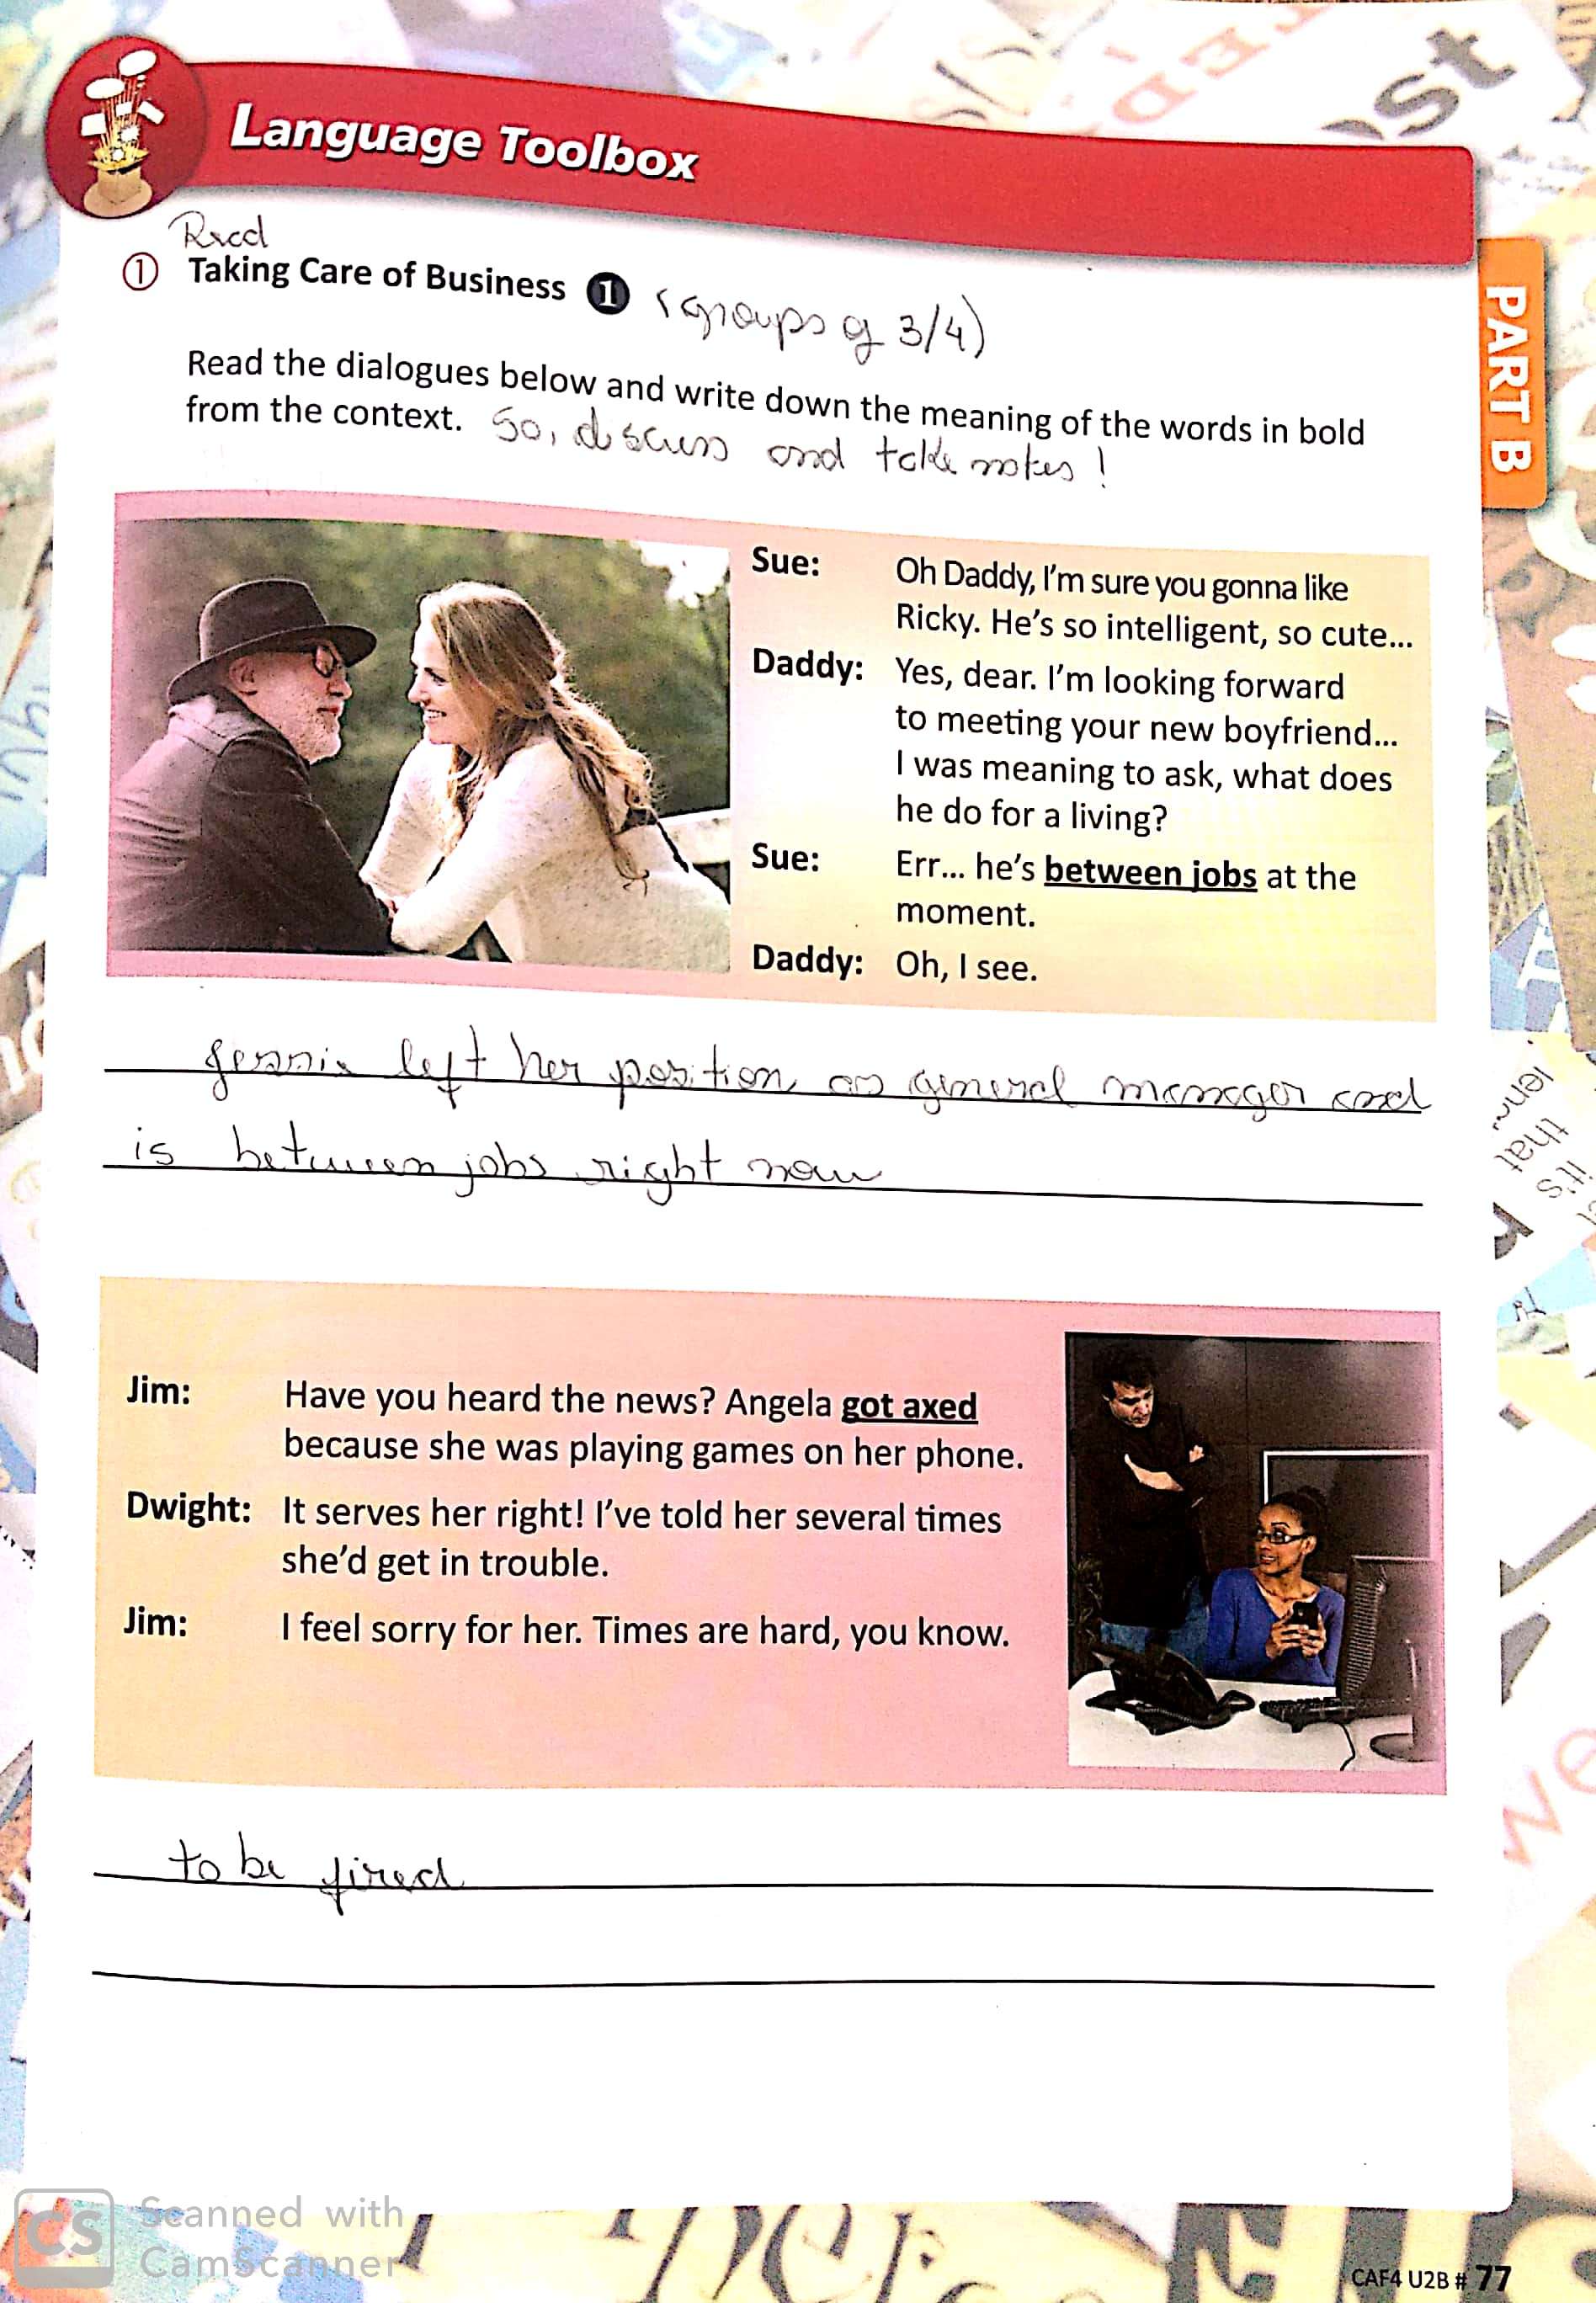 Language Toolbox
Read
① Taking Care of Business 1 (groups of 3/4)
Read the dialogues below and write down the meaning of the words in bold
from the context. So, discuss and take notes!
PART B
Sue: Oh Daddy, I'm sure you gonna like
Ricky. He's so intelligent, so cute...
Daddy: Yes, dear. I'm looking forward
to meeting your new boyfriend...
I was meaning to ask, what does
he do for a living?
Sue: Err... he's between jobs at the
moment.
Daddy: Oh, I see.
Jennie left her position as general manager and
is between jobs right now
Jim: Have you heard the news? Angela got axed
because she was playing games on her phone.
Dwight: It serves her right! I've told her several times
she'd get in trouble.
Jim: I feel sorry for her. Times are hard, you know.
to be fired
CS Scanned with
CamScanner
CAF4 U2B # 77